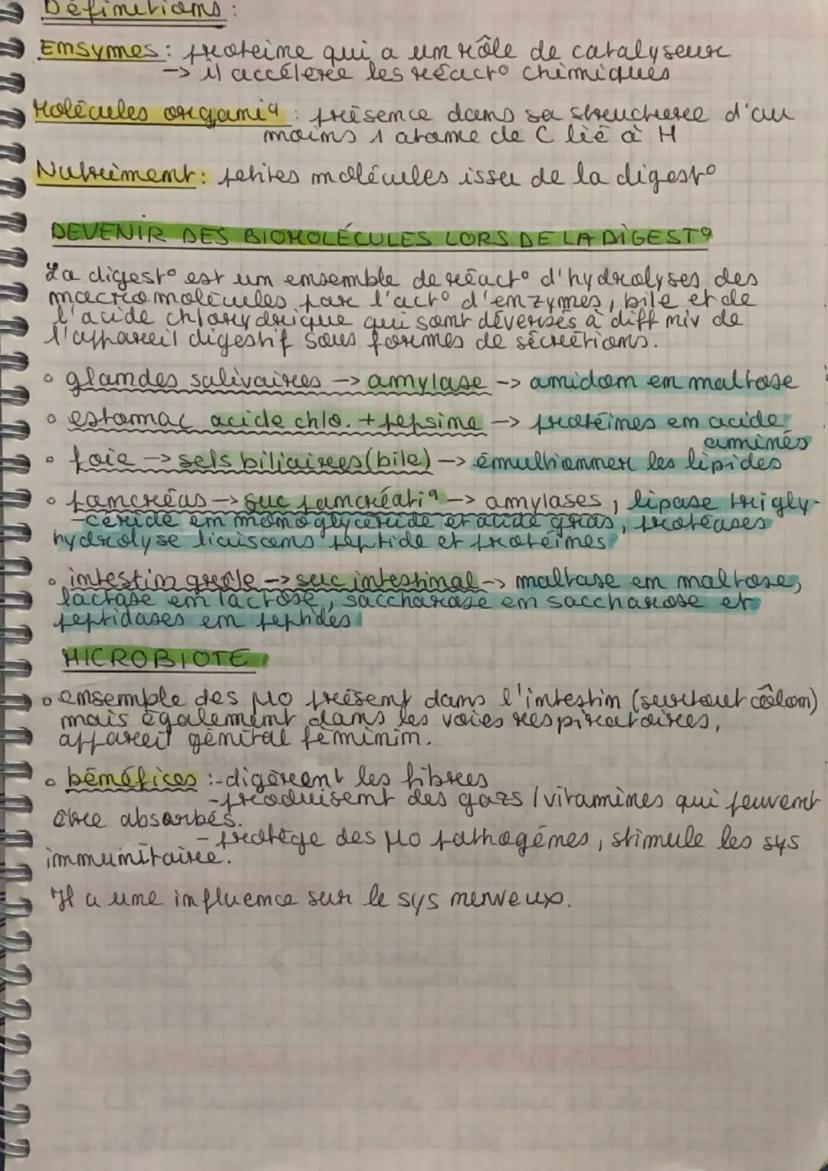 Définitions :
Ensymes : proteine qui a un rôle de catalyseur
-> il accélere les réactº chimiques
Molécules organiq : présence dans sa structuree d'au
moins 1 atome de C lié à H
Nutriment : petites molécules issu de la digestº
DEVENIR DES BIOMOLÉCULES LORS DE LA DIGESTº
La digestº est un ensemble de réactº d'hydrolyses des
macromolécules par l'actº d'enzymes, bile et de
l'acide chlorydrique qui sont déversés à diff niv de
l'appareil digestif sous formes de sécrétions.
° glandes salivaires -> amylase -> amidon en maltose
° estomac acide chlo. + pepsine -> protéines en acide
aminés
° foie -> sels biliaires (bile) -> émulsionner les lipides
° pancréas -> suc pancréatiq -> amylases, lipase trigly-
-céride en monoglycéride et acide gras, protéases
hydrolyse liaisons peptide et protéines
° intestin grêle -> suc intestinal -> maltase en maltose,
lactase en lactose, saccharase en saccharose et
peptidases en peptides
MICROBIOTE
° ensemble des µo présent dans l'intestin (surtout côlon)
mais également dans les voies respiratoires,
appareil génital féminin.
° bénéfices : - digèrent les fibres
- produisent des gazs / vitamines qui peuvent
être absorbés.
- protège des µo pathogénes, stimule les sys
immunitaire.
Il a une influence sur le sys nerveux.